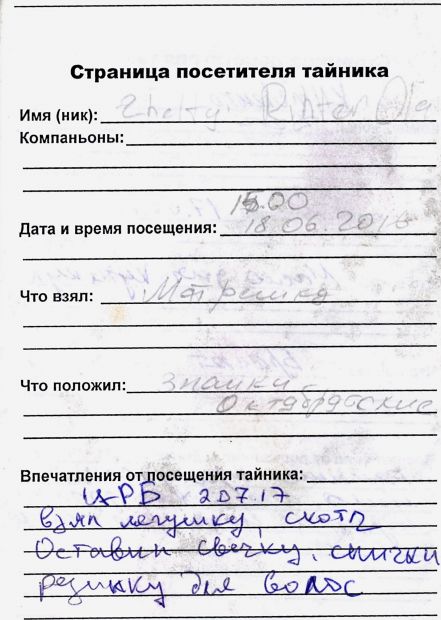 Страница посетителя тайника
Имя (ник):
Компаньоны:
15.00
Дата и время посещения: 18.06.2016
Что взял: Матрешка
Что положил: Значки
Октябрятские
Впечатления от посещения тайника:
ЦРБ 2.07.17
взял лягушку, скотч
Оставил свечку, спички
резинку для волос